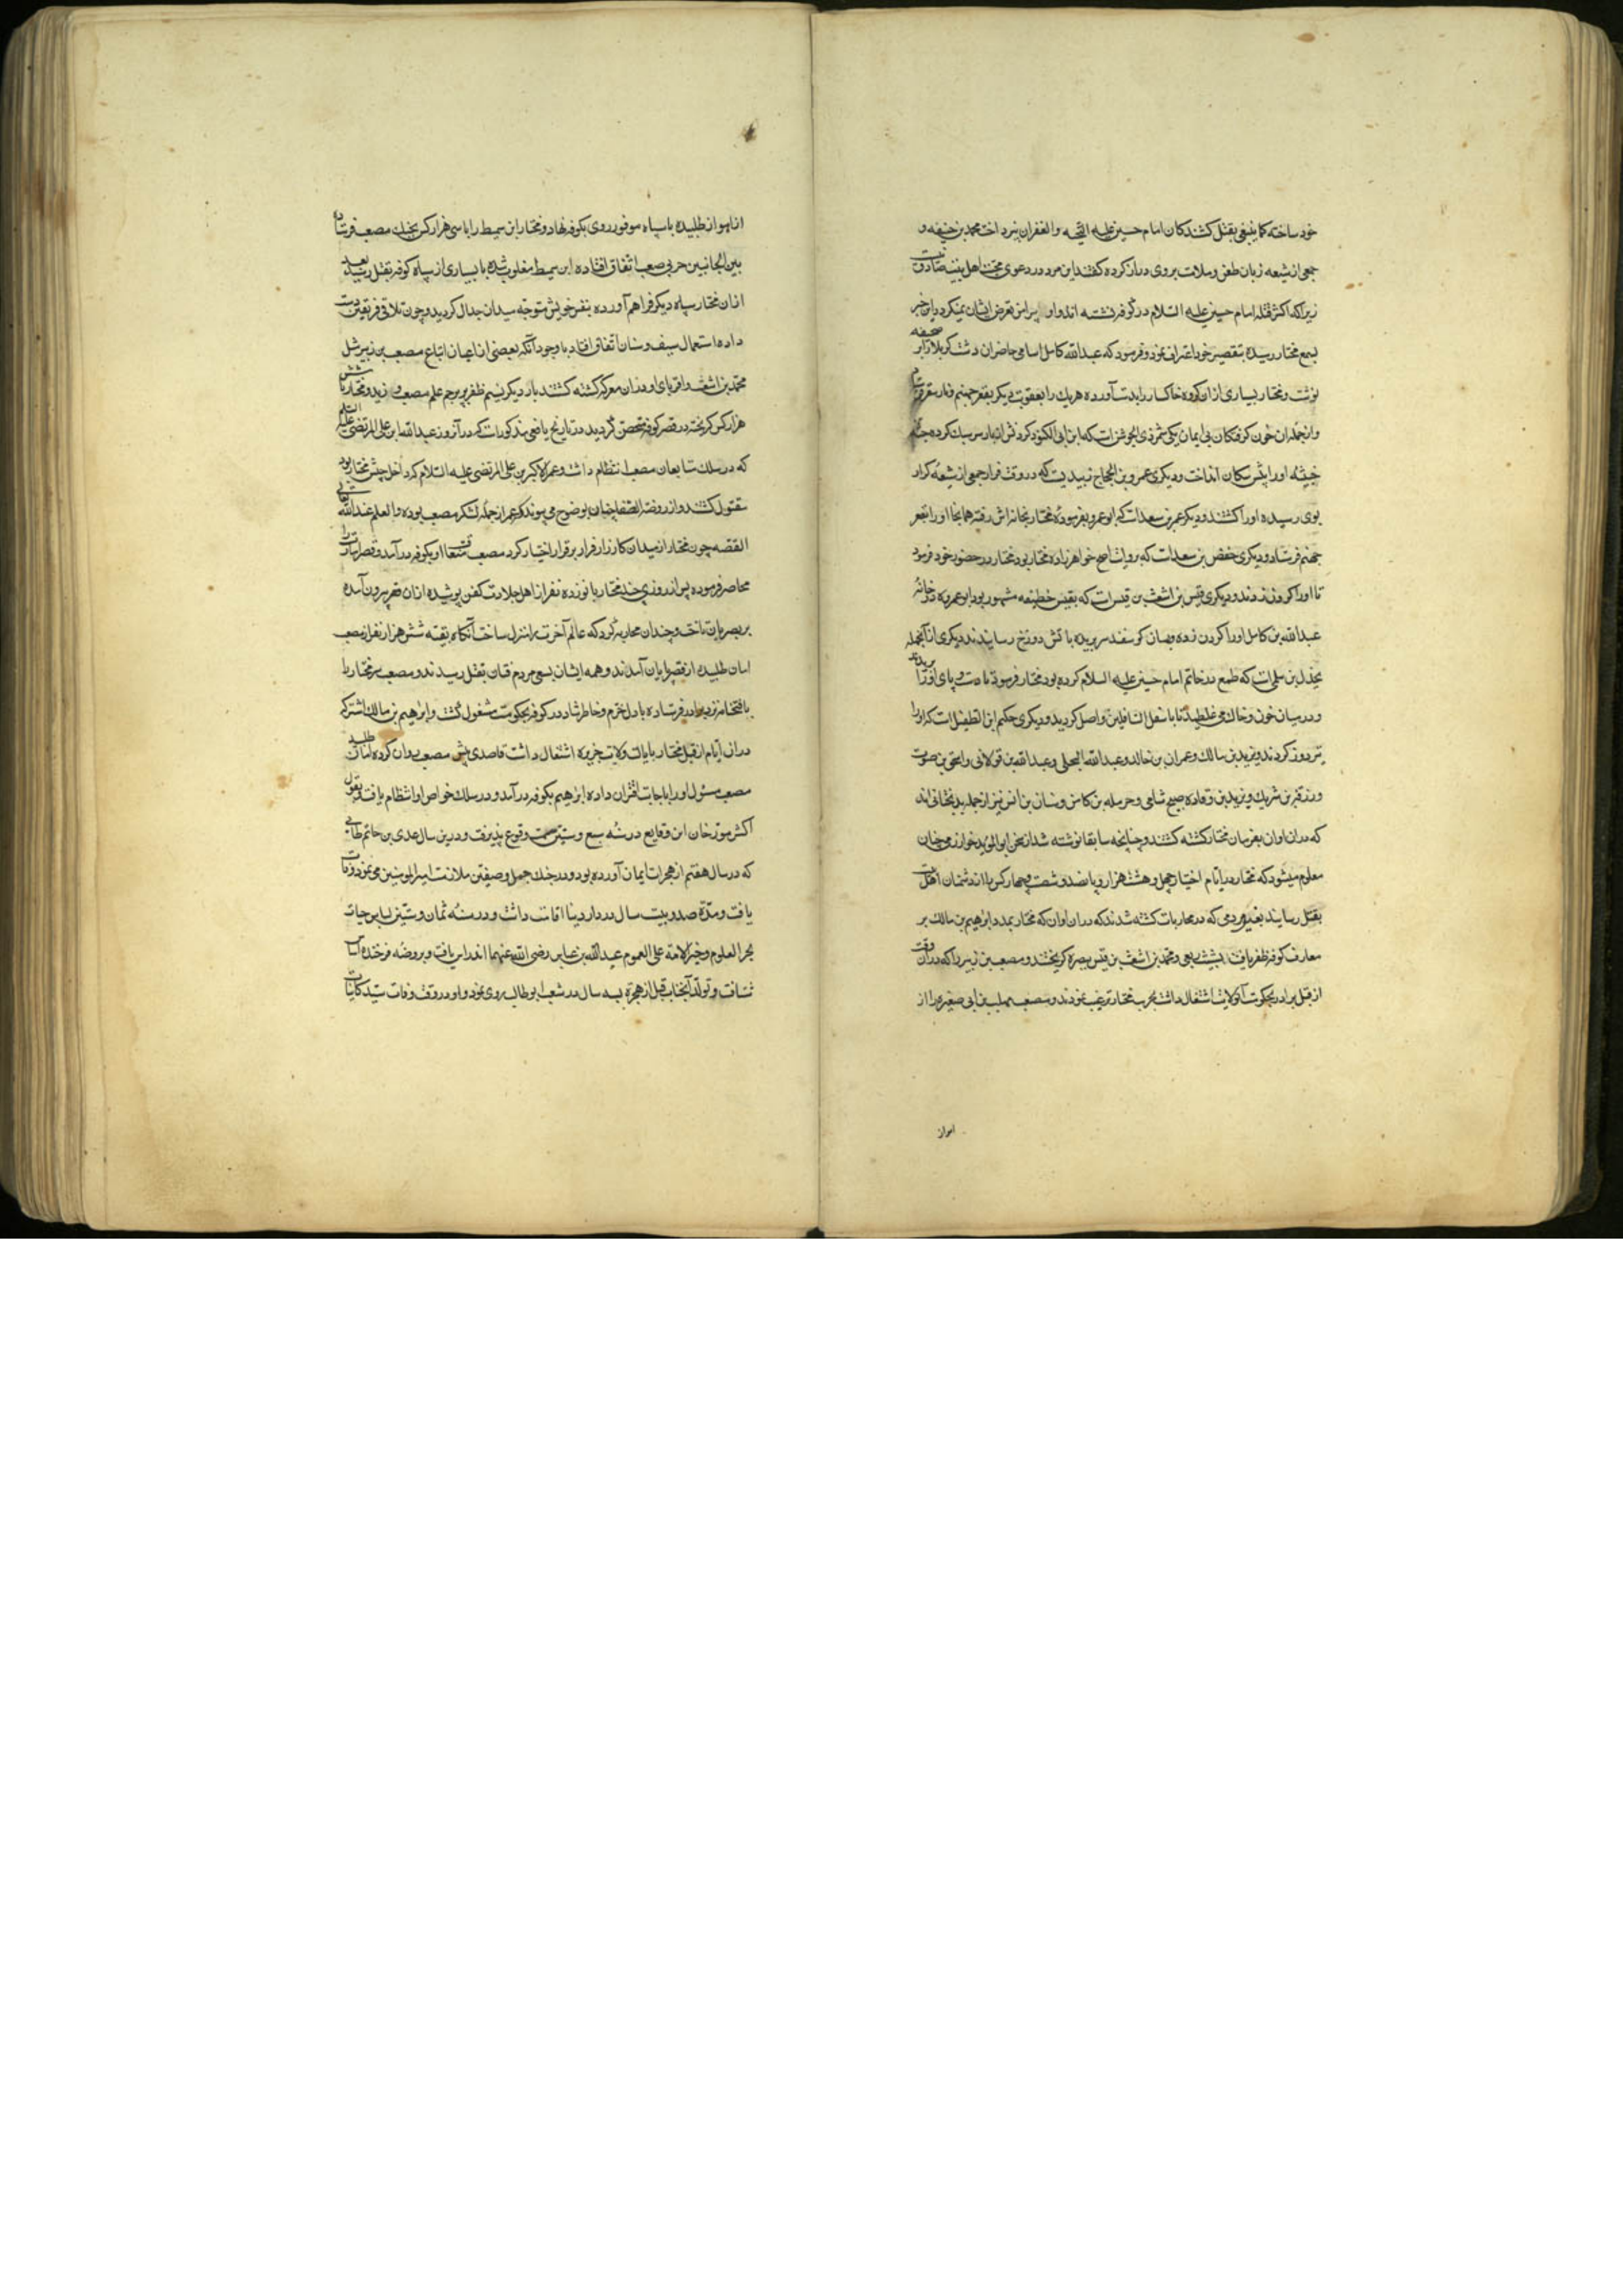 خود ساخته کما ینبغی بقتل کشندکان امام حسین علیه التحیه والغفران نپرداخت محمد بن حنیفه و
جمعی از شیعه زبان طعن و ملامت بروی دراز کرده کفتند این مرد در دعوی محبت اهل بیت صادق نیست
زیرا که اکثر قتله امام حسین علیه السلام در کوفه نشسته اند و او پیرامن تعرض ایشان نمیکردد و این خبر
بسمع مختار رسیده بتقصیر خود اعتراف نمود و فرمود که عبدالله کامل اسامی حاضران دشت کربلا را بر صحیفه
نوشت و مختار بسیاری از ان کروه خاکسار را بدست آورده هر یک را بعقوبت دیکر بقعر جهنم
و از جمله ان خون کرفتکان بی ایمان یکی شمر ذی الجوشن است که ابن ابی الکنود کردنش از بار سر سبک کرده
جیفه او را پیش سکان انداخت و دیکری عمرو بن الحجاج زبیدیست که در وقت فرار جمعی از شیعه کرار
بوی رسیده او را کشتند و دیکر عمر بن سعد است که ابو عمرو بفرموده مختار بخانه اش رفته همانجا او را بقعر
جهنم فرستاد و دیکری حفص بن سعد است که بروایت اصح خواهر زاده مختار بود مختار در حضور خود فرمود
تا او را کردن زدند و دیکری قیس بن اشعث بن قیس است که بقیس خطیفه مشهور بود ابو عمره در خانه
عبدالله بن کامل او را کردن زده و بسان کوسفند سر بریده باتش دوزخ رسانیدند دیکری از آنجمله
بجدل بن سلیم است که طمع در خاتم امام حسین علیه السلام کرده بود مختار فرمود تا دست و پای او را بریدند
و در میان خون و خاک می غلطید تا باسفل السافلین واصل کردید و دیکری حکیم ابن الطفیل است که او را
تیر دوز کردند و یزید بن مالک و عمران بن خالد و عبدالله البجلی و عبدالله بن
ورزقه بن شریک و یزید بن وقاده صبیح شامی و حرمله بن کاهن و سنان بن انس نیز از جمله بدبختانی اند
که در ان اوان بفرمان مختار کشته کشتند و چنانچه سابقا نوشته شد از سخن ابو الموید خوارزمی چنان
معلوم میشود که مختار در ایام اختیار چهل و هشت هزار و پانصد و شصت و چهار کس را از دشمنان اهل بیت
بقتل رسانید بغیر مردمی که در محاربات کشته شدند که در ان اوان که مختار بمدد ابراهیم بن مالک بر
معارف کوفه ظفر یافت شبث بن ربعی و محمد بن اشعث بن قیس ببصره کریختند و مصعب بن زبیر را که در ان وقت
از قبل برادر بحکومت آن ولایت اشتغال داشت بحرب مختار ترغیب نمودند و مصعب مهلب بن ابی صفره را از
اهواز
از اهواز طلبیده با سپاه موفور روی بکوفه نهاد و مختار ابن سمیط را با سی هزار کس بجنک مصعب فرستاد
بین الجانبین حربی صعب اتفاق افتاده ابن سمیط مغلوب شده با بسیاری از سپاه کوفه بقتل رسید بعد
از ان مختار سپاه دیکر فراهم آورده بنفس خویش متوجه میدان جدال کردید و چون تلاقی فریقین دست
داده استعمال سیف و سنان اتفاق افتاد با وجود آنکه بعضی از اعیان اتباع مصعب بن زبیر مثل
محمد بن اشعث و اقربای او در ان معرکه کشته کشتند بار دیکر نسیم ظفر بر پرچم علم مصعب وزید و مختار با شش
هزار کس کریخته در قصر کوفه متحصن کردید در تاریخ یافعی مذکور است که در آنروز عبدالله ابن علی المرتضی علیه السلام
که در سلک متابعان مصعب انتظام داشت و عمر الاکبر بن علی المرتضی علیه السلام که داخل جیش مختار بود
مقتول کشتند و از روضة الصفا چنان بوضوح می پیوندد که عمر از جمله لشکر مصعب بوده والعلم عند الله تعالی
القصه چون مختار از میدان کارزار فرار بر قرار اختیار کرد مصعب متعاقب او بکوفه در آمد و قصر امارت را
محاصره فرموده پس از روزی چند مختار با نوزده نفر از اهل جلادت کفن پوشیده از ان قصر بیرون آمده
بر بصریان تاخت و چندان محاربه کرد که عالم آخرت را منزل ساخت آنکاه بقیه شش هزار نفر از مصعب
امان طلبیده از قصر بپایان آمدند و همه ایشان بسعی مردم فتان بقتل رسیدند و مصعب سر مختار را
با فتحنامه نزد برادر فرستاده با دل خرم و خاطر شاد در کوفه بحکومت مشغول کشت و ابراهیم بن مالک اشتر که
در ان ایام از قبل مختار بایالت ولایت جزیره اشتغال داشت قاصدی پیش مصعب روان کرده امان طلبید
مصعب مسئول او را باجابت اقتران داده ابراهیم بکوفه در آمد و در سلک خواص او انتظام یافت و بقول
اکثر مورخان این وقایع در سنه سبع و ستین سمت وقوع پذیرفت و درین سال عدی بن حاتم طائی
که در سال هفتم از هجرت ایمان آورده بود و در جنک جمل و صفین ملازمت امیر المومنین می نمود وفات
یافت و مدة صد و بیست سال در دار دنیا اقامت داشت و در سنه ثمان و ستین لباس حیات
بحر العلوم و خیر الامة علی العموم عبدالله بن عباس رضی الله عنهما اندراس یافت و بروضه فرخنده
شتافت و تولد آنجناب قبل از هجرة بسه سال در شعب ابو طالب روی نمود و او در وقت وفات سید کاینات